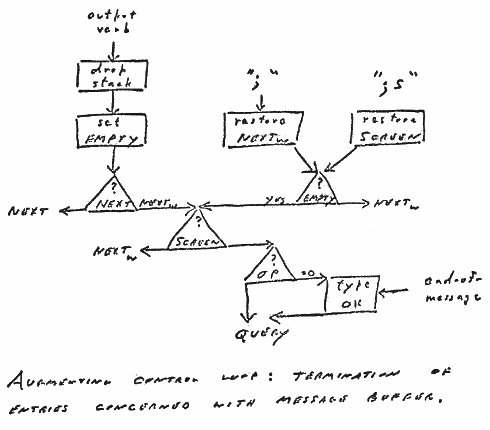 output
verb
drop
stack
set
EMPTY
";"
restore
NEXTw
";S"
restore
SCREEN
?
NEXT
NEXT
NEXTw
?
EMPTY
yes
NEXTw
?
SCREEN
NEXTw
?
OP
=0
type
OK
end-of-
message
QUERY
AUGMENTING CONTROL LOOP: TERMINATION OF
ENTRIES CONCERNED WITH MESSAGE BUFFER.